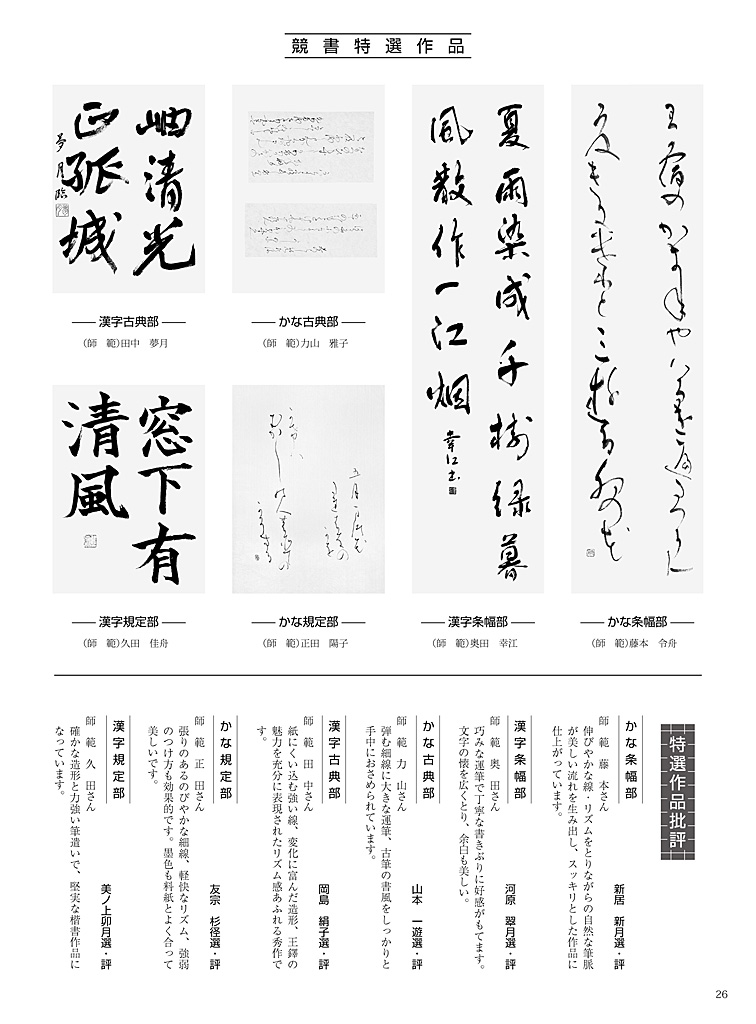 競書特選作品
岫清光
正孤城
夢月臨
漢字古典部
(師　範)田中　夢月
かな古典部
(師　範)力山　雅子
窓下有
清風
漢字規定部
(師　範)久田　佳舟
かな規定部
(師　範)正田　陽子
夏雨染成千樹緑暮
風散作一江烟
幸江書
漢字条幅部
(師　範)奥田　幸江
かな条幅部
(師　範)藤本　令舟
特選作品批評
かな条幅部
新居　新月選・評
師　範　藤　本さん
伸びやかな線・リズムをとりながらの自然な筆脈
が美しい流れを生み出し、スッキリとした作品に
仕上がっています。
漢字条幅部
河原　翠月選・評
師　範　奥　田さん
巧みな運筆で丁寧な書きぶりに好感がもてます。
文字の懐を広くとり、余白も美しい。
かな古典部
山本　一遊選・評
師　範　力　山さん
弾む細線に大きな運筆、古筆の書風をしっかりと
手中におさめられています。
漢字古典部
岡島　絹子選・評
師　範　田　中さん
紙にくい込む強い線、変化に富んだ造形、王鐸の
魅力を充分に表現されたリズム感あふれる秀作で
す。
かな規定部
友宗　杉径選・評
師　範　正　田さん
張りのあるのびやかな細線、軽快なリズム、強弱
のつけ方も効果的です。墨色も料紙とよく合って
美しいです。
漢字規定部
美ノ上卯月選・評
師　範　久　田さん
確かな造形と力強い筆遣いで、堅実な楷書作品に
なっています。
26